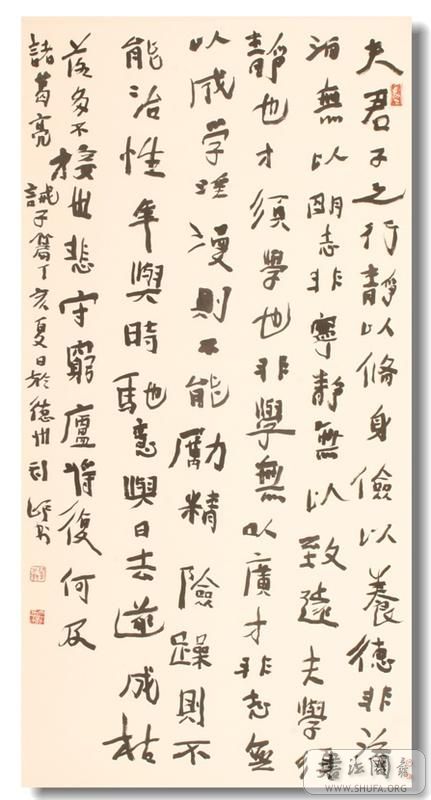 夫君子之行靜以脩身儉以養德非淡
泊無以明志非寧靜無以致遠夫學須
靜也才須學也非學無以廣才非志無
以成学淫漫則不能勵精險躁則不
能治性年與時馳意與日去遂成枯
落多不接世悲守窮廬將復何及
諸葛亮誡子篇丁亥夏日於德州司书
WWW.SHUFA.ORG